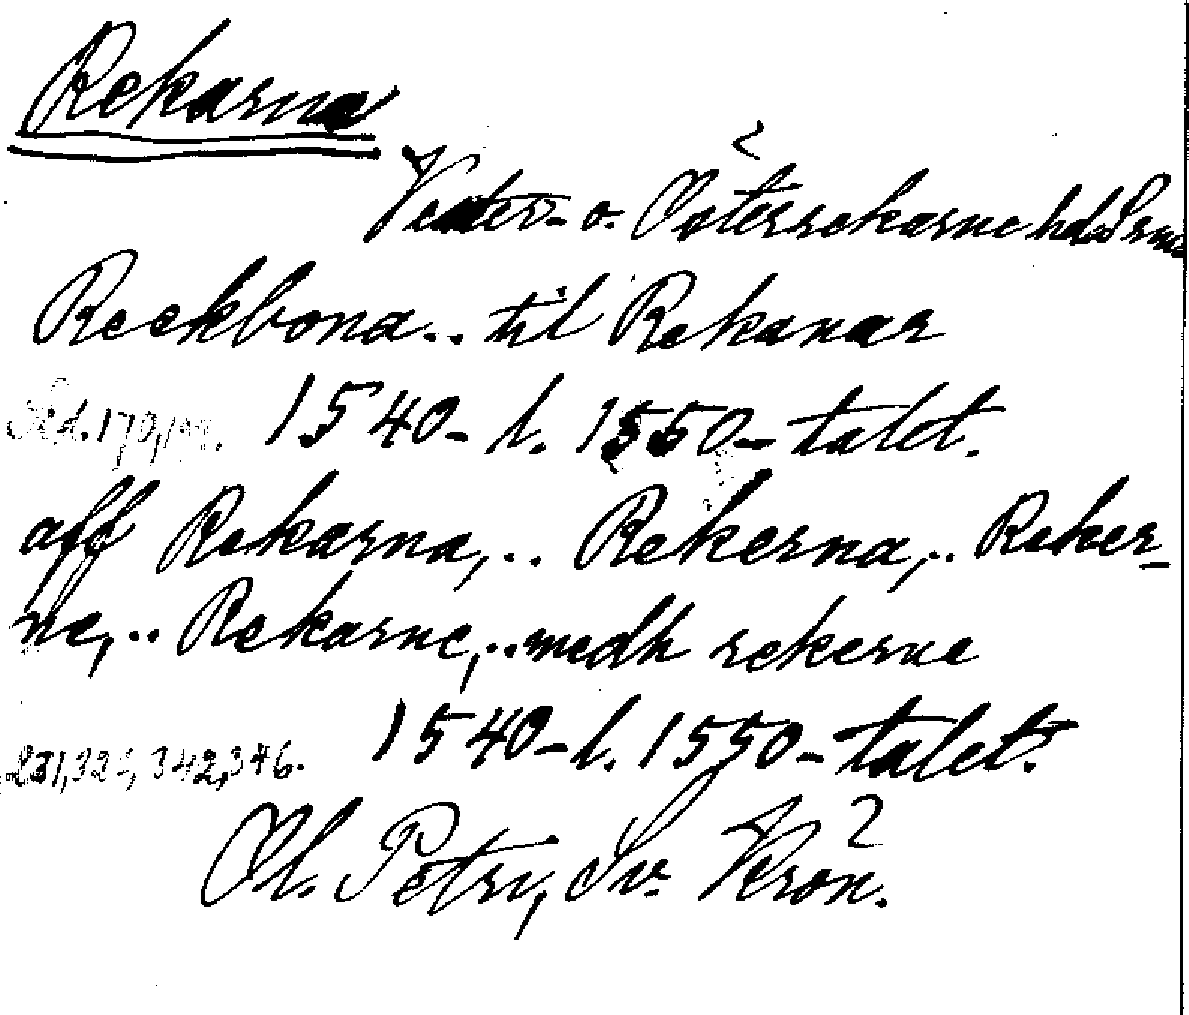 Rekarna
Väster- o. Österrekarne hdr Srm
Reekbona.. til Rekanar
Sid. 170, 1540- l. 1550-talet.
aff Rekarna,.. Rekerna,.. Reker-
ne,.. Rekarne,.. medh rekerne
342,346. 1540- l. 1550-talet.
Ol. Petri, Sv. Krön. 2